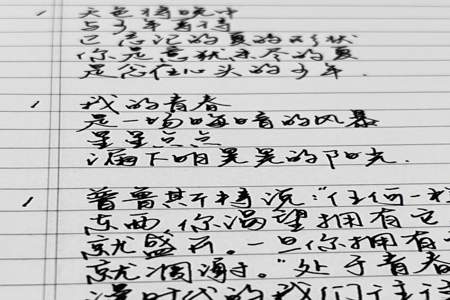 天色将晚中
与少年
已忘记的夏的形状
你是意犹未尽的夏
是念在心头的少年.
我的青春
是一场晦暗的风暴
星星点点
漏下明晃晃的阳光.
普鲁斯特说:“任何一样
东西,你渴望拥有它
就盛开。一旦你拥有
就凋谢。”处于青春
漫时代的我们往往